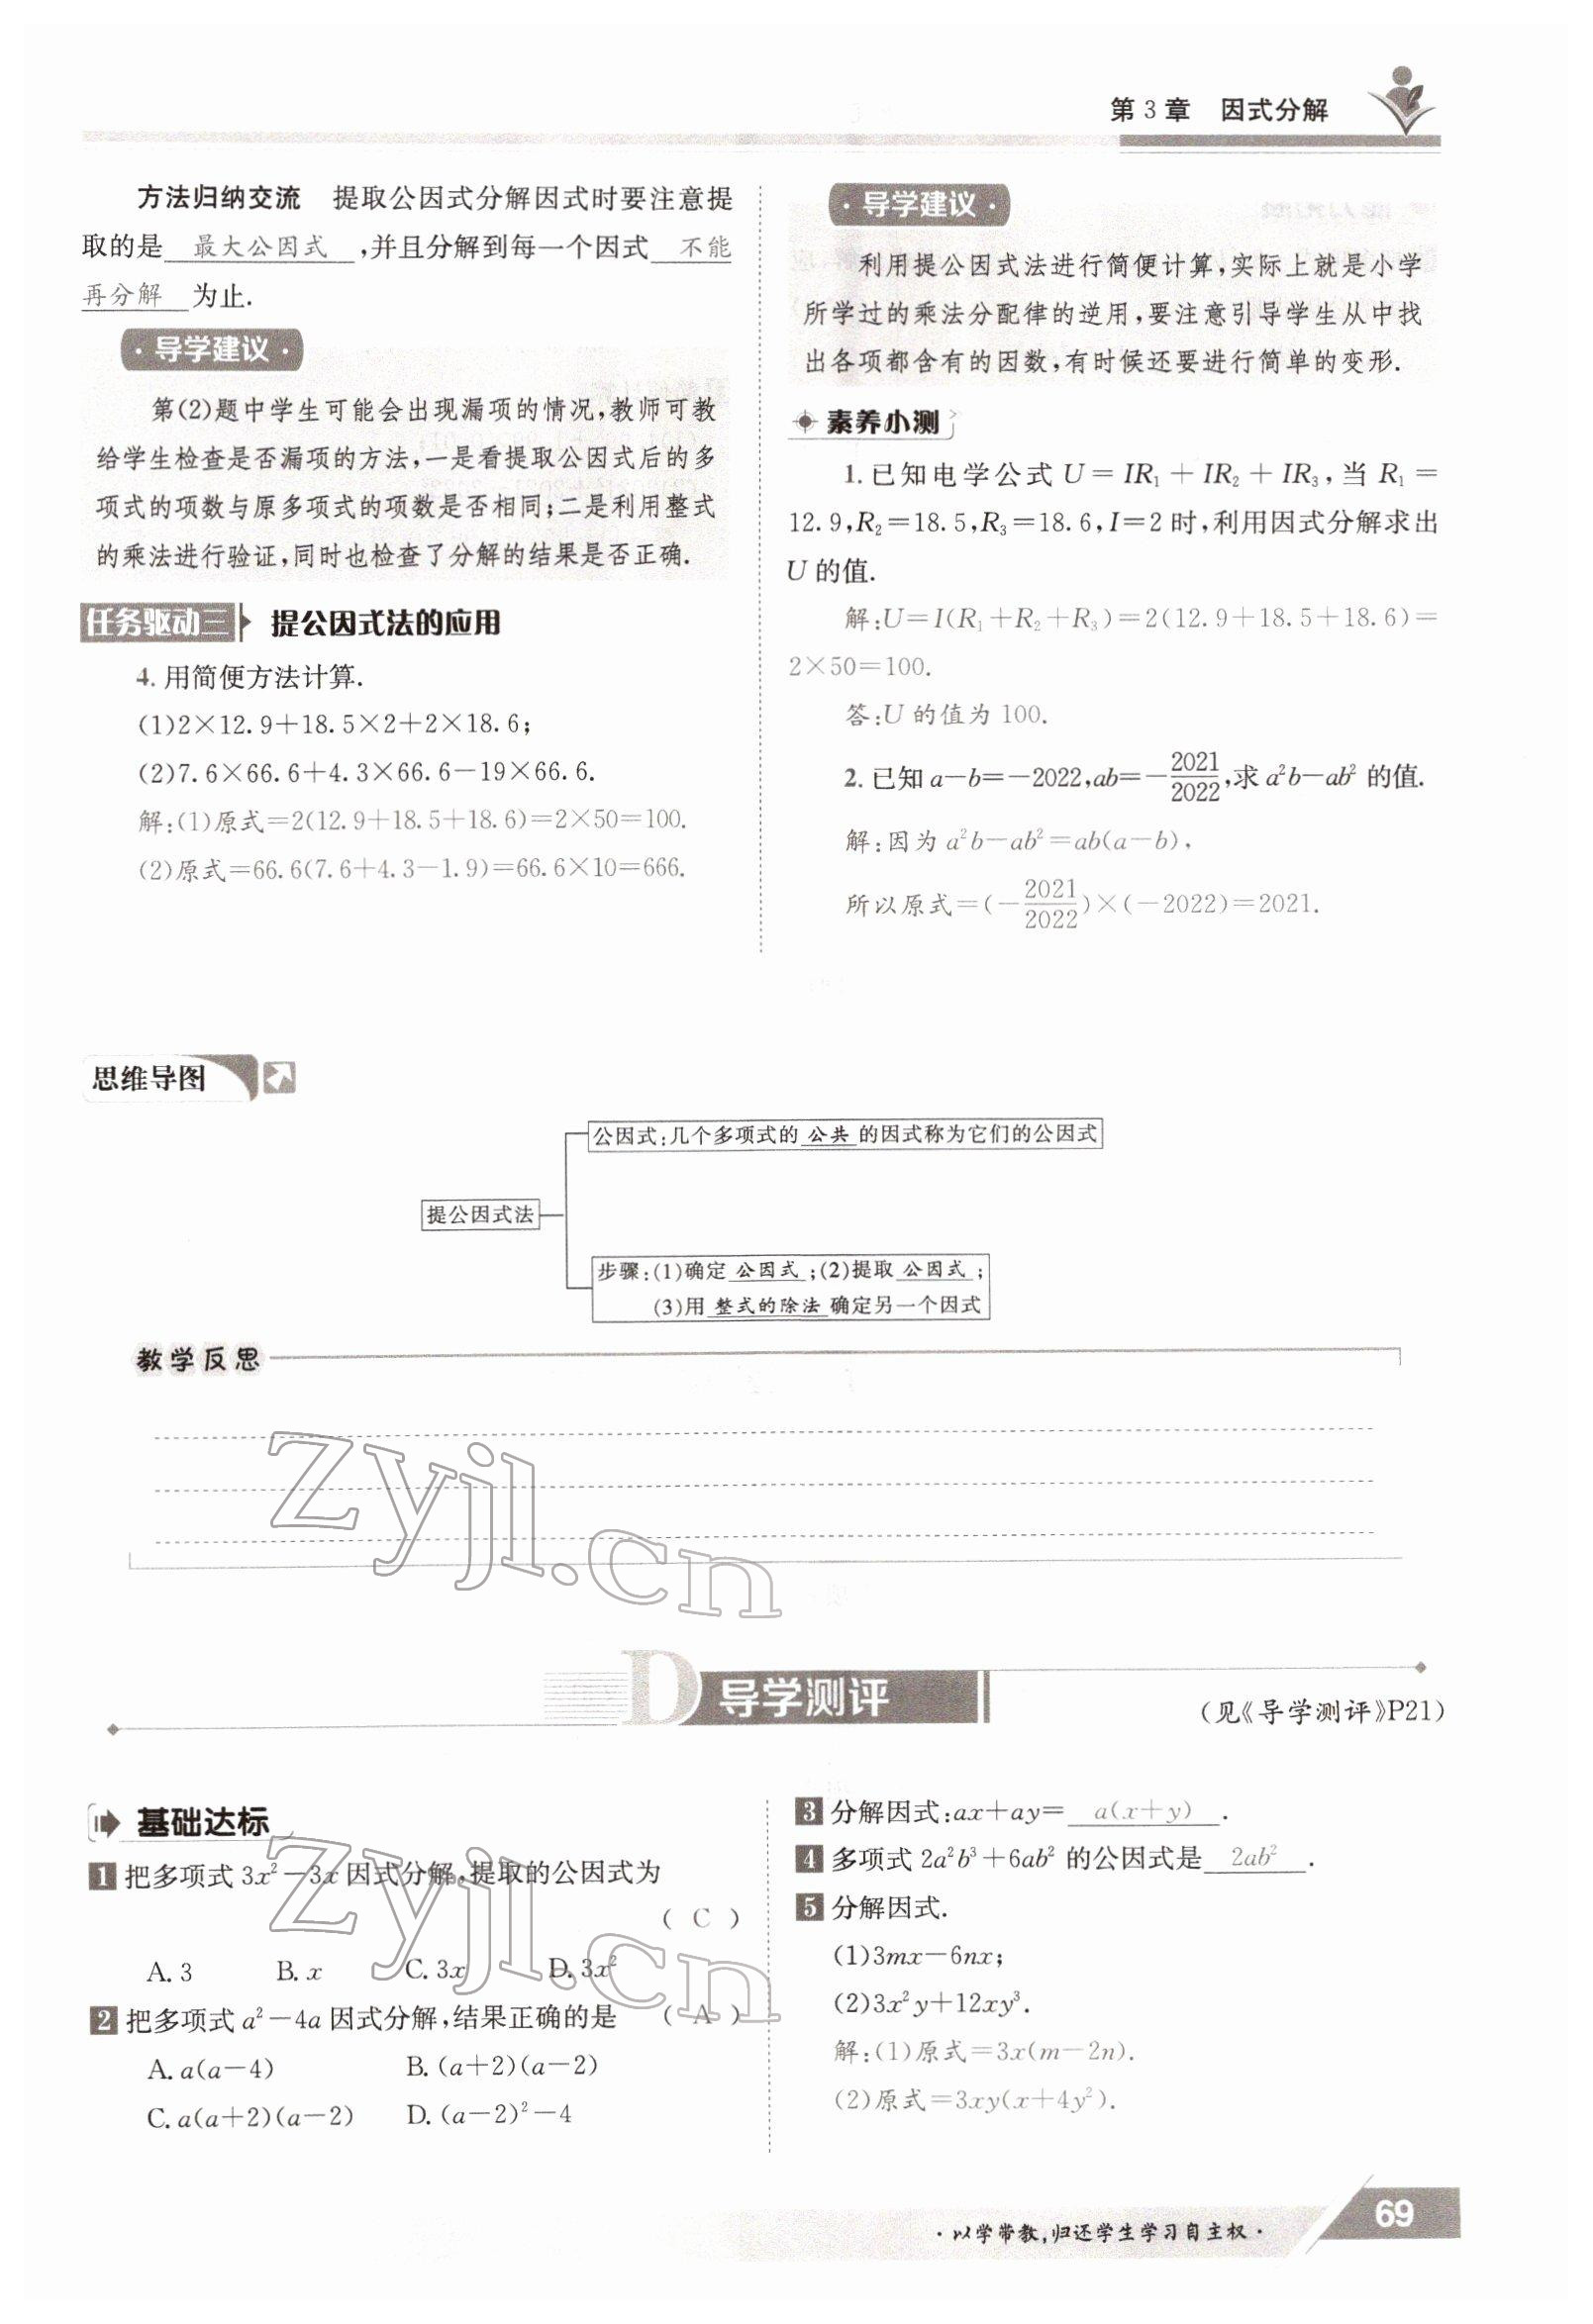 第3章 因式分解
方法归纳交流 提取公因式分解因式时要注意提
取的是 最大公因式 ,并且分解到每一个因式 不能
再分解 为止.
·导学建议·
第(2)题中学生可能会出现漏项的情况,教师可教
给学生检查是否漏项的方法,一是看提取公因式后的多
项式的项数与原多项式的项数是否相同;二是利用整式
的乘法进行验证,同时也检查了分解的结果是否正确.
任务驱动三 提公因式法的应用
4.用简便方法计算.
(1)2×12.9+18.5×2+2×18.6;
(2)7.6×66.6+4.3×66.6-19×66.6.
解:(1)原式=2(12.9+18.5+18.6)=2×50=100.
(2)原式=66.6(7.6+4.3-1.9)=66.6×10=666.
·导学建议·
利用提公因式法进行简便计算,实际上就是小学
所学过的乘法分配律的逆用,要注意引导学生从中找
出各项都含有的因数,有时候还要进行简单的变形.
素养小测
1.已知电学公式 U=IR₁+IR₂+IR₃,当 R₁=
12.9,R₂=18.5,R₃=18.6,I=2时,利用因式分解求出
U的值.
解:U=I(R₁+R₂+R₃)=2(12.9+18.5+18.6)=
2×50=100.
答:U的值为100.
2.已知a-b=-2022,ab=-2021/2022,求a²b-ab²的值.
解:因为a²b-ab²=ab(a-b),
所以原式=(-2021/2022)×(-2022)=2021.
思维导图
公因式:几个多项式的 公共 的因式称为它们的公因式
提公因式法
步骤:(1)确定 公因式 ;(2)提取 公因式 ;
(3)用 整式的除法 确定另一个因式
教学反思
zyjl.cn
D 导学测评
(见《导学测评》P21)
基础达标
1 把多项式3x²-3x因式分解,提取的公因式为
( C )
A.3 B.x C.3x D.3x²
2 把多项式a²-4a因式分解,结果正确的是 ( A )
A.a(a-4) B.(a+2)(a-2)
C.a(a+2)(a-2) D.(a-2)²-4
zyjl.cn
3 分解因式:ax+ay= a(x+y) .
4 多项式2a²b³+6ab²的公因式是 2ab² .
5 分解因式.
(1)3mx-6nx;
(2)3x²y+12xy³.
解:(1)原式=3x(m-2n).
(2)原式=3xy(x+4y²).
·以学带教,归还学生学习自主权·
69